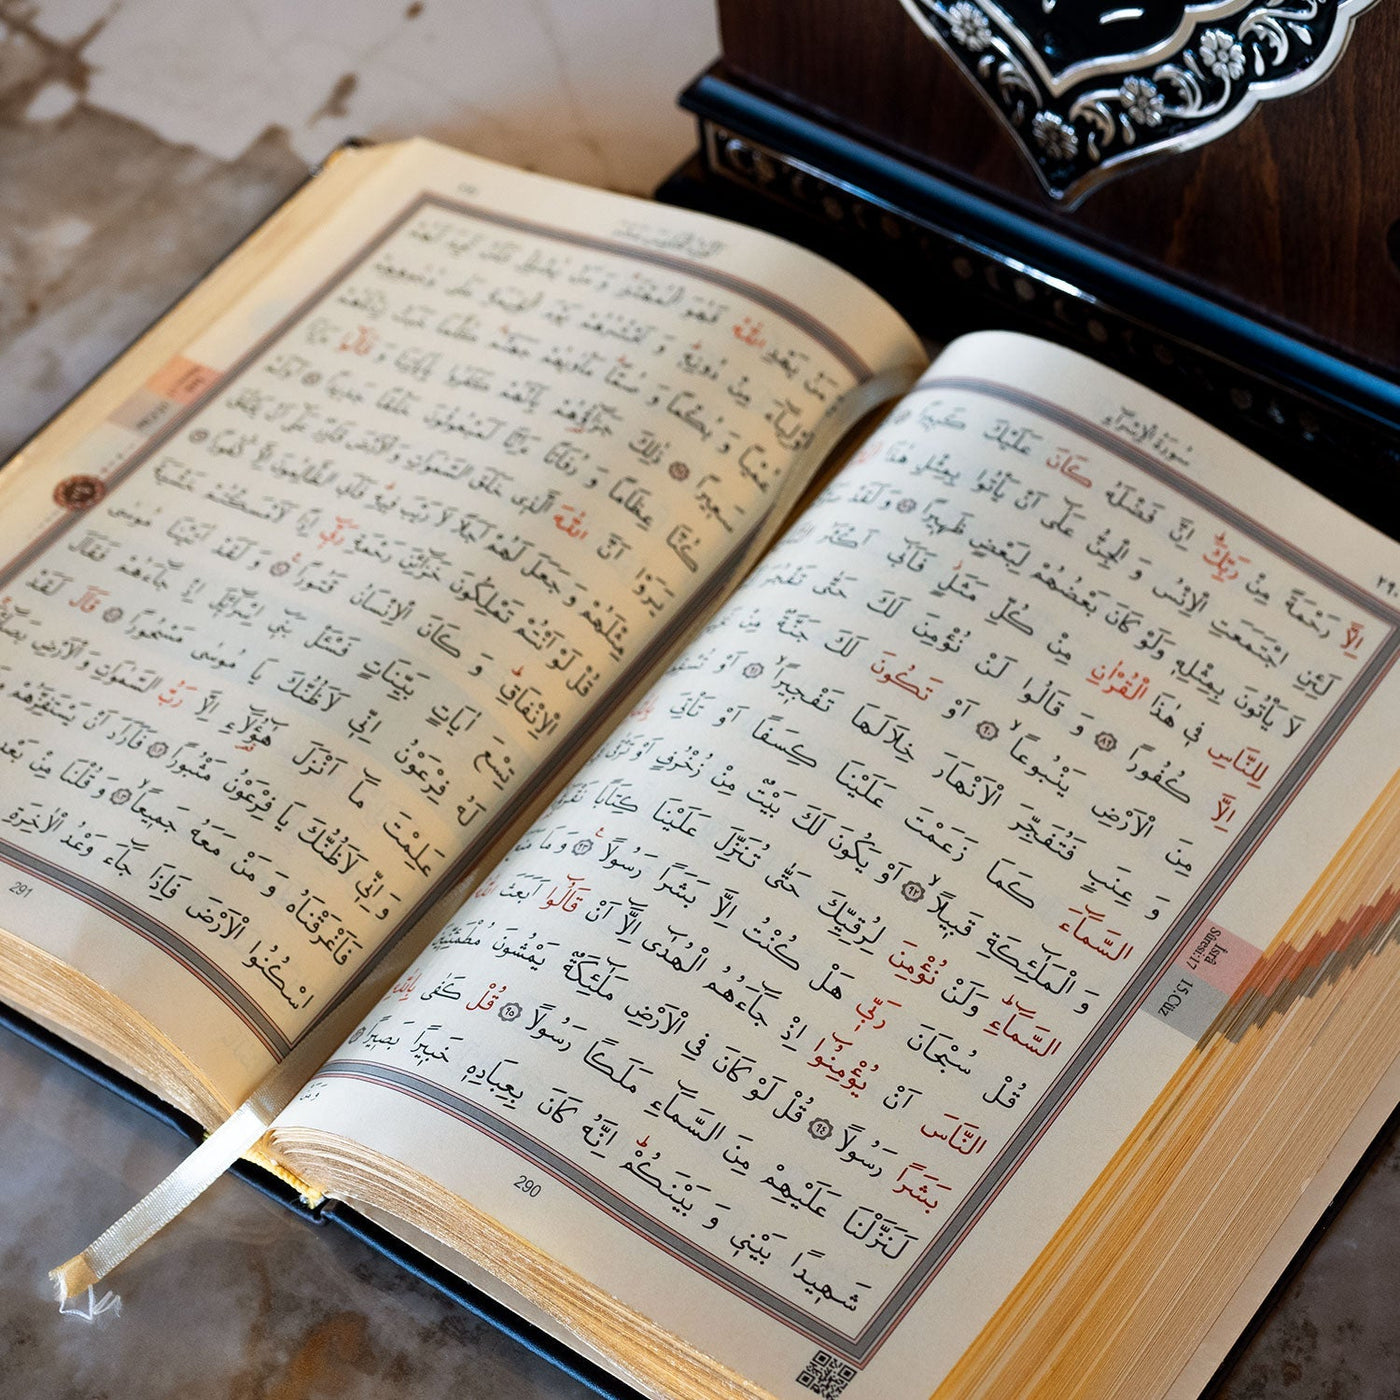 سُورَةُ الْاِسْرَاءِ
اِلَّا رَحْمَةً مِنْ رَبِّكَ اِنَّ فَضْلَهُ كَانَ عَلَيْكَ كَبِيرًا
لَئِنِ اجْتَمَعَتِ الْاِنْسُ وَالْجِنُّ عَلٰٓى اَنْ يَأْتُوا بِمِثْلِ هٰذَا
لَا يَأْتُونَ بِمِثْلِهِ وَلَوْ كَانَ بَعْضُهُمْ لِبَعْضٍ ظَهِيرًا ﴿٨٨﴾ وَلَقَدْ
لِلنَّاسِ فِي هٰذَا الْقُرْاٰنِ مِنْ كُلِّ مَثَلٍ فَاَبٰٓى اَكْثَرُ
اِلَّا كُفُورًا ﴿٨٩﴾ وَقَالُوا لَنْ نُؤْمِنَ لَكَ حَتّٰى تَفْجُرَ
مِنَ الْاَرْضِ يَنْبُوعًا ﴿٩٠﴾ اَوْ تَكُونَ لَكَ جَنَّةٌ مِنْ
وَعِنَبٍ فَتُفَجِّرَ الْاَنْهَارَ خِلَالَهَا تَفْجِيرًا ﴿٩١﴾ اَوْ
السَّمَٓاءَ كَمَا زَعَمْتَ عَلَيْنَا كِسَفًا اَوْ تَأْتِيَ
وَالْمَلٰٓئِكَةِ قَبِيلًا ﴿٩٢﴾ اَوْ يَكُونَ لَكَ بَيْتٌ مِنْ زُخْرُفٍ اَوْ تَرْقٰى
السَّمَٓاءِ وَلَنْ نُؤْمِنَ لِرُقِيِّكَ حَتّٰى تُنَزِّلَ عَلَيْنَا كِتَابًا
قُلْ سُبْحَانَ رَبِّي هَلْ كُنْتُ اِلَّا بَشَرًا رَسُولًا ﴿٩٣﴾ وَمَا
النَّاسَ اَنْ يُؤْمِنُٓوا اِذْ جَٓاءَهُمُ الْهُدٰٓى اِلَّٓا اَنْ قَالُٓوا اَبَعَثَ
بَشَرًا رَسُولًا ﴿٩٤﴾ قُلْ لَوْ كَانَ فِي الْاَرْضِ مَلٰٓئِكَةٌ يَمْشُونَ
لَنَزَّلْنَا عَلَيْهِمْ مِنَ السَّمَٓاءِ مَلَكًا رَسُولًا ﴿٩٥﴾ قُلْ كَفٰى بِاللّٰهِ
شَهِيدًا بَيْنِي وَبَيْنَكُمْ اِنَّهُ كَانَ بِعِبَادِهِ خَبِيرًا بَصِيرًا
290
İsrâ Sûresi:17 15.Cüz
فَهُوَ الْمُهْتَدِ وَمَنْ يُضْلِلْ فَلَنْ تَجِدَ لَهُمْ
اَوْلِيَٓاءَ مِنْ دُونِهِ وَنَحْشُرُهُمْ يَوْمَ الْقِيٰمَةِ عَلٰى وُجُوهِهِمْ
عُمْيًا وَبُكْمًا وَصُمًّا مَأْوٰيهُمْ جَهَنَّمُ كُلَّمَا خَبَتْ زِدْنَاهُمْ
سَعِيرًا ﴿٩٧﴾ ذٰلِكَ جَزَٓاؤُهُمْ بِاَنَّهُمْ كَفَرُوا بِاٰيَاتِنَا وَقَالُٓوا ءَاِذَا
كُنَّا عِظَامًا وَرُفَاتًا ءَاِنَّا لَمَبْعُوثُونَ خَلْقًا جَدِيدًا ﴿٩٨﴾ اَوَلَمْ
يَرَوْا اَنَّ اللّٰهَ الَّذِي خَلَقَ السَّمٰوَاتِ وَالْاَرْضَ قَادِرٌ عَلٰٓى اَنْ يَخْلُقَ
مِثْلَهُمْ وَجَعَلَ لَهُمْ اَجَلًا لَا رَيْبَ فِيهِ فَاَبَى الظَّالِمُونَ اِلَّا كُفُورًا ﴿٩٩﴾
قُلْ لَوْ اَنْتُمْ تَمْلِكُونَ خَزَٓائِنَ رَحْمَةِ رَبِّٓي اِذًا لَاَمْسَكْتُمْ خَشْيَةَ
الْاِنْفَاقِ وَكَانَ الْاِنْسَانُ قَتُورًا ﴿١٠٠﴾ وَلَقَدْ اٰتَيْنَا مُوسٰى
تِسْعَ اٰيَاتٍ بَيِّنَاتٍ فَسْئَلْ بَنِٓي اِسْرَٓائِيلَ اِذْ جَٓاءَهُمْ فَقَالَ
لَهُ فِرْعَوْنُ اِنِّي لَاَظُنُّكَ يَا مُوسٰى مَسْحُورًا ﴿١٠١﴾ قَالَ لَقَدْ
عَلِمْتَ مَٓا اَنْزَلَ هٰٓؤُلَٓاءِ اِلَّا رَبُّ السَّمٰوَاتِ وَالْاَرْضِ
وَاِنِّي لَاَظُنُّكَ يَا فِرْعَوْنُ مَثْبُورًا ﴿١٠٢﴾ فَاَرَادَ اَنْ يَسْتَفِزَّهُمْ
فَاَغْرَقْنَاهُ وَمَنْ مَعَهُ جَمِيعًا ﴿١٠٣﴾ وَقُلْنَا مِنْ بَعْدِهِ
اسْكُنُوا الْاَرْضَ فَاِذَا جَٓاءَ وَعْدُ الْاٰخِرَةِ
291